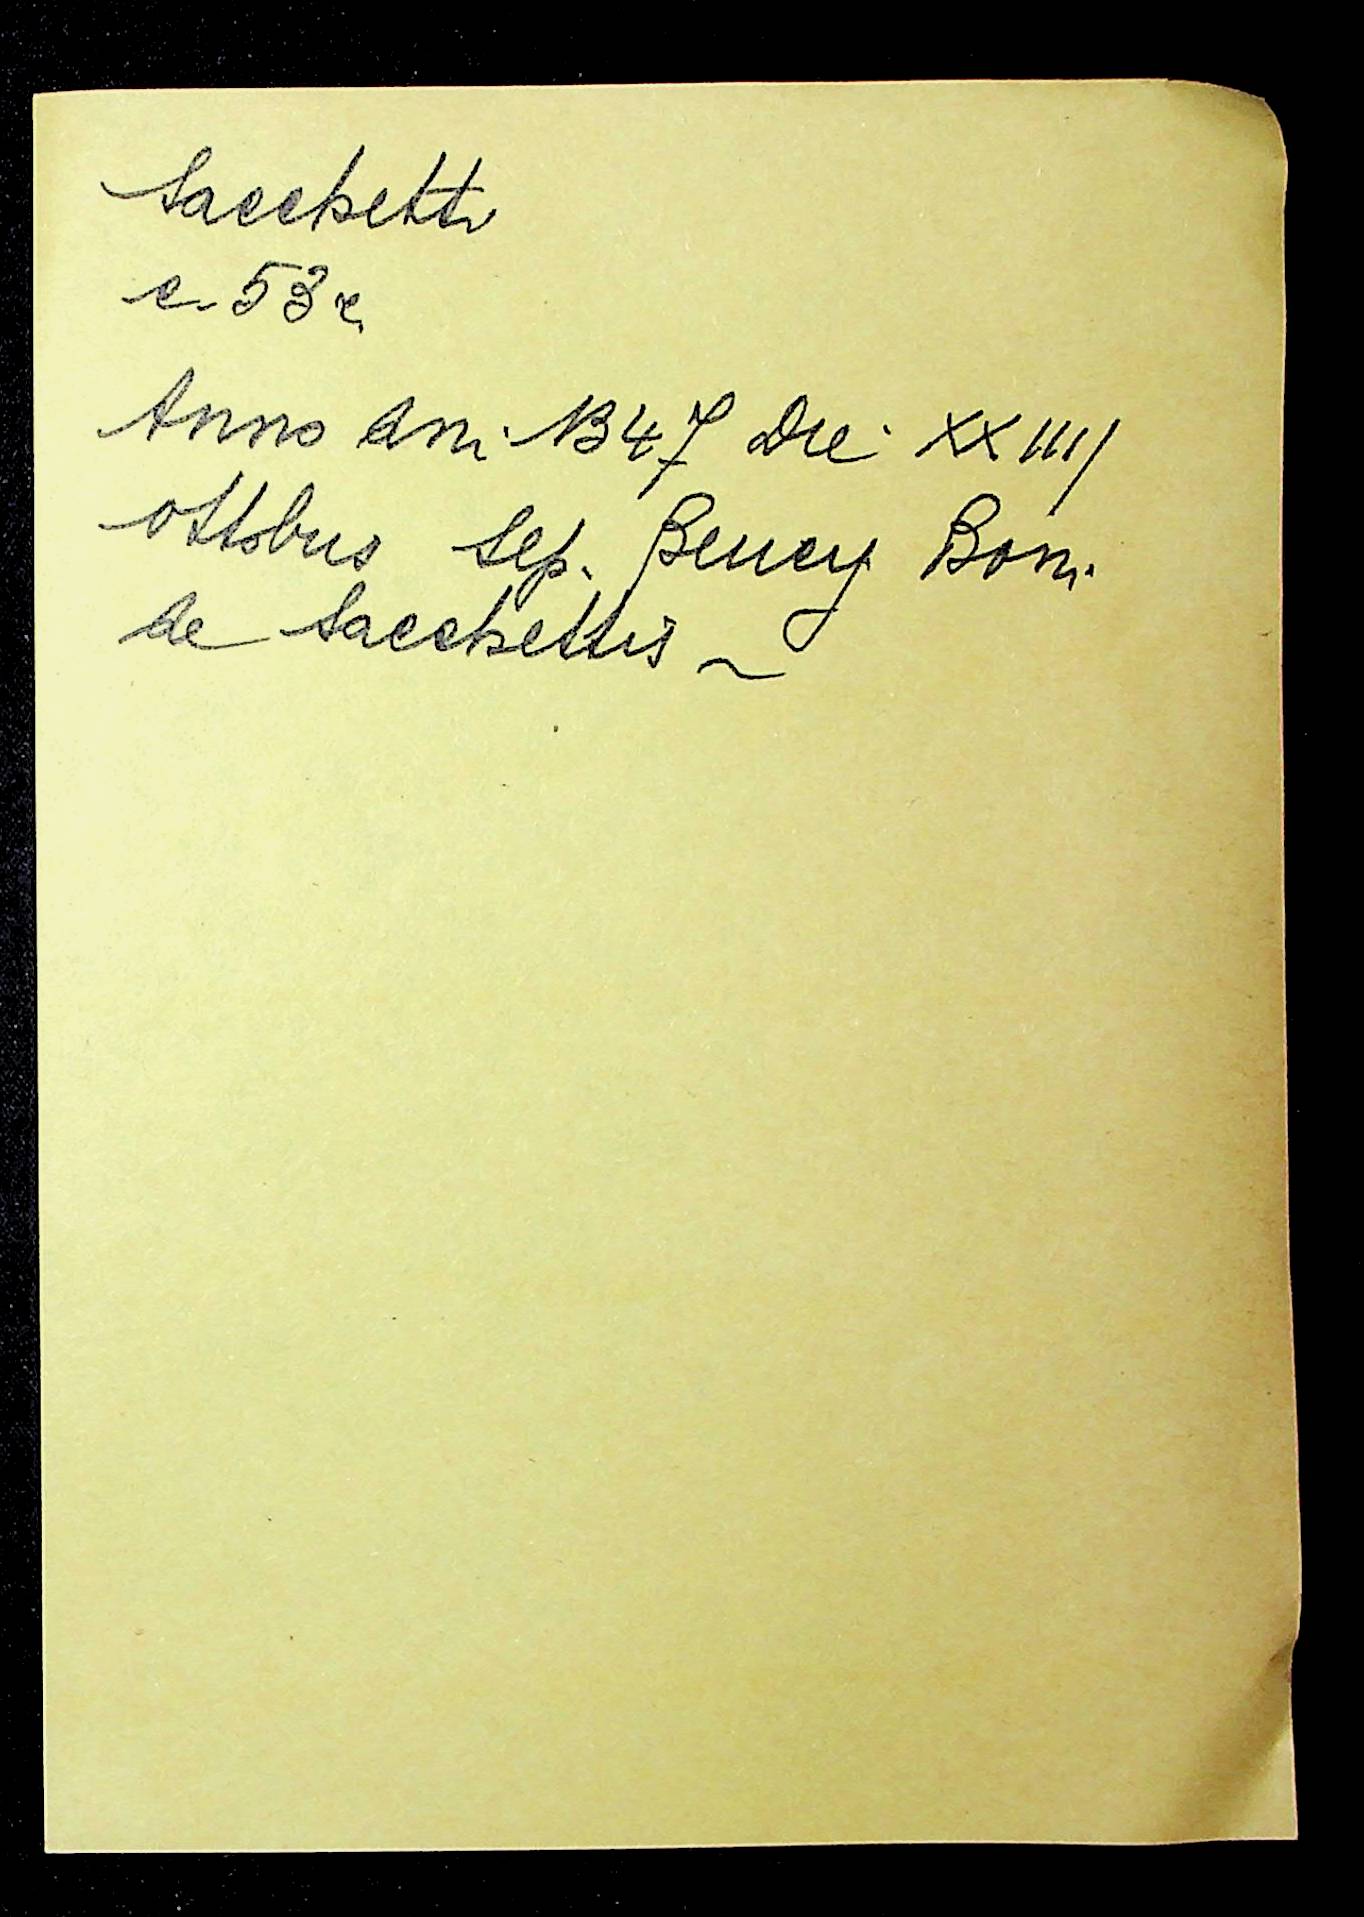 Sacchetti
c. 53 r.
Anno dni. 1347 Die XXIIIJ
ottobris Sep. Bency Boni
de Sacchettis ~